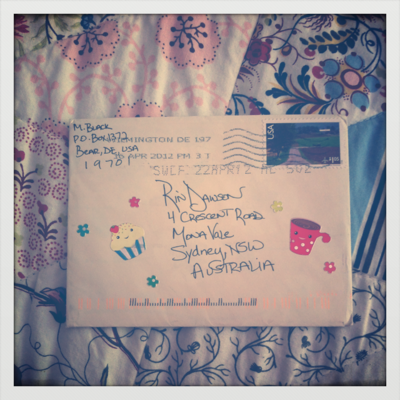 M. Black
P.O. Box 1372
Bear, DE, USA
19701
MINGTON DE 197
APR 2012 PM 3 T
USA
SWCF 22APR12 AC 502
Rin Dawson
4 Crescent Road
Mona Vale
Sydney, NSW
Australia